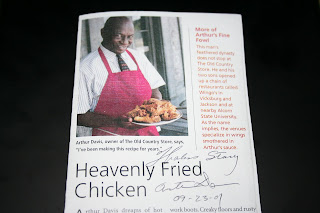 More of
Arthur's Fine
Fowl
This man's
feathered dynasty
does not stop at
The Old Country
Store. He and his
two sons opened
up a chain of
restaurants called
Wingo's in
Vicksburg and
Jackson and at
nearby Alcorn
State University.
As the name
implies, the venues
specialize in wings
smothered in
Arthur's sauce.
Arthur Davis, owner of The Old Country Store, says,
"I've been making this recipe for years."
Heavenly Fried
Chicken
09-23-09
Arthur Davis dreams of lost
work boots. Creaky floors and rusty